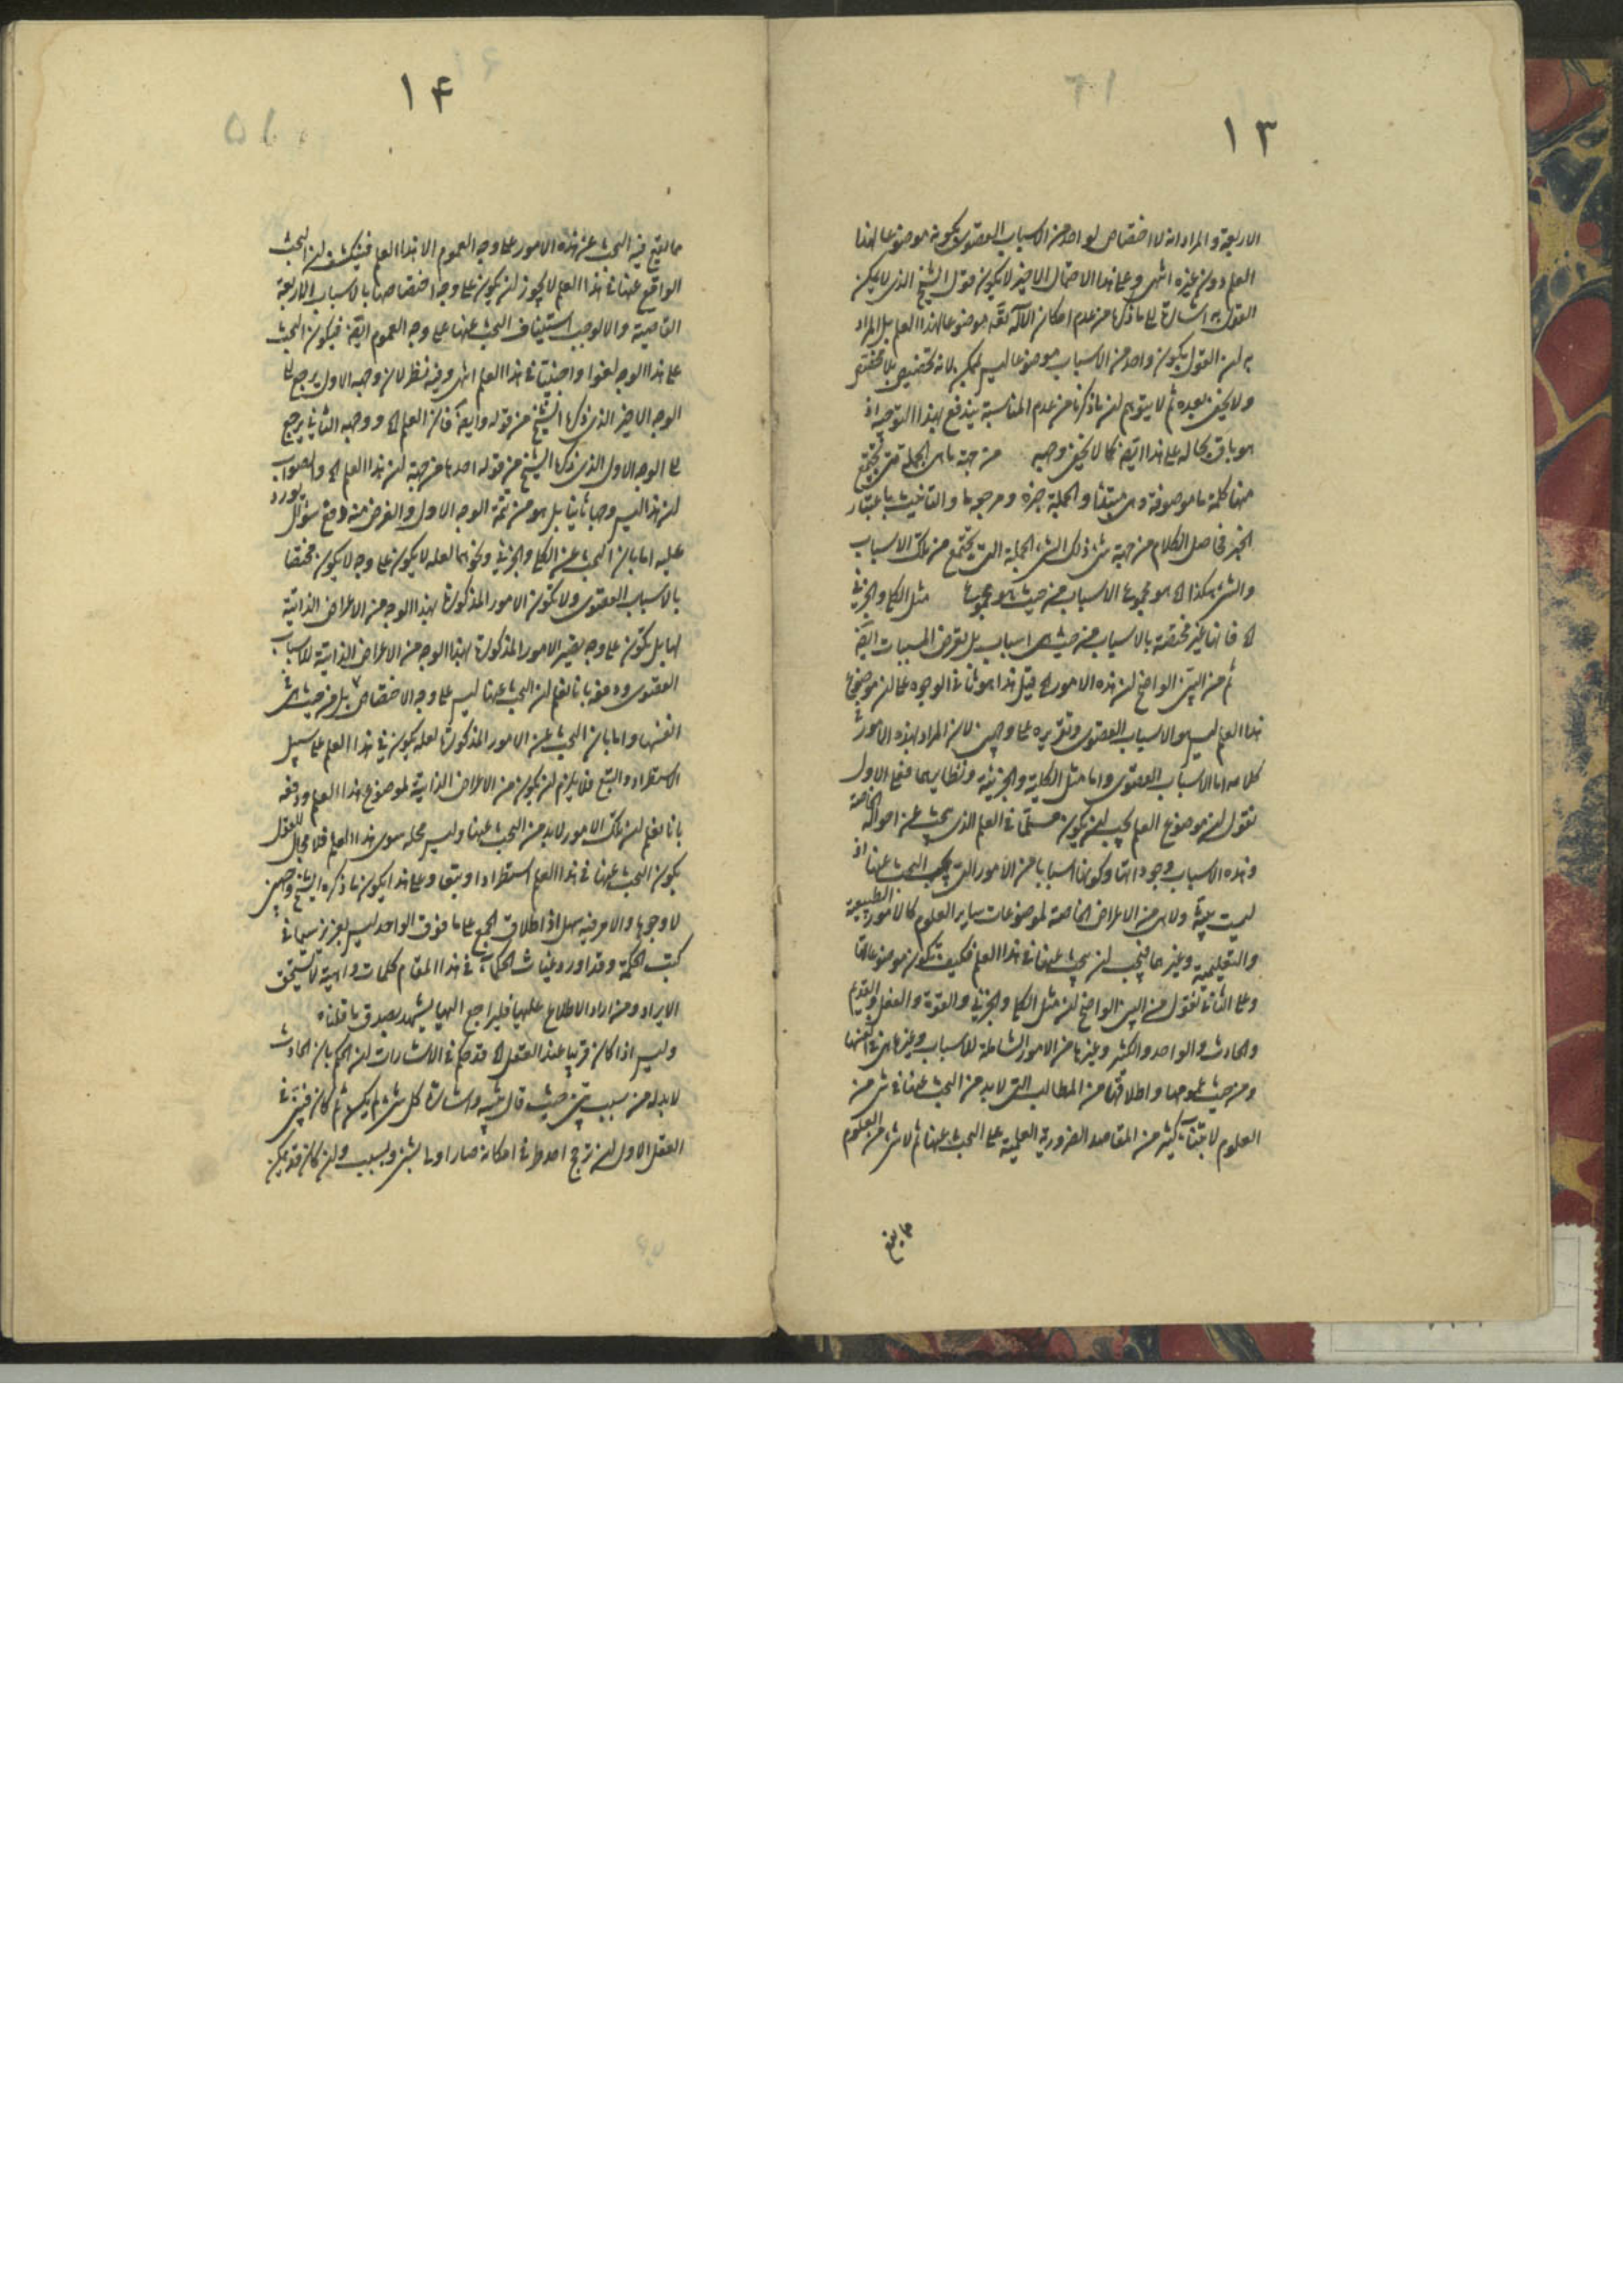 ١٣
الاربعة و المراد انه لا اختصاص لواحد من الاسباب القصوى بكونه موضوعا لهذا
العلم دون غيره انتهى و على هذا الاحتمال الاخير لا يكون قول الشيخ الذي لا يمكن
القول به اشارة الى ما ذكره من عدم امكان موضوعا لهذا العلم بل المراد
به ان القول بكون واحد من الاسباب موضوعا ليس يمكن لانه تخصيص بلا مخصص
ولا يخفى بعده ثم لا يتوهم ان ما ذكرنا من عدم المناسبة يندفع بهذا التوجيه اذ
هو باق بحاله على هذا ايضا كما لا يخفى وجهه من جهة ما هى الجملة التى تجتمع
منها كلمة ما موصوفة وهى مبتدا و الجملة خبره و مرجعها و التانيث باعتبار
الخبر فحاصل الكلام من جهة شئ ذلك الشئ الجملة التى تجتمع من تلك الاسباب
والشئ هكذا الخ هو مجموع الاسباب من حيث هو مجموعها مثل الكلى والجزئى
الخ فانها غير مختصة بالاسباب من حيث هى اسباب بل تعرض المسببات ايضا
ثم من البين الواضح ان هذه الامور الخ قيل هذا هو ثانى الوجوه على ان موضوع
هذا العلم ليس هو الاسباب القصوى و تقريره على وجهين لان المراد بهذه الامور فى
كلامه اما الاسباب القصوى و اما مثل الكلية والجزئية و نظايرهما فعلى الاول
نقول ان موضوع العلم يجب ان يكون مسلما فى العلم الذي يبحث عن احواله الخاصة
و هذه الاسباب وجوداتها و كونها اسبابا من الامور التى يجب البحث عنها اذ
ليست بينة و لا هى من الاعراض الخاصة لموضوعات ساير العلوم كالامور الطبيعية
والتعليمية و غيرها فيجب ان يبحث عنها فى هذا العلم فكيف تكون موضوعاتها
و على الثانى نقول من البين الواضح ان مثل الكلى والجزئى والقوة والفعل والقدم
والحادث والواحد والكثير و غيرها من الامور الشاملة للاسباب و غيرها هى فى انفسها
و من حيث عمومها و اطلاقها من المطالب التى لا بد من البحث عنها فى شئ من
العلوم لابتناء كثير من المقاصد الضرورية العلمية على البحث عنها ثم لا شئ من العلوم
ما يقع
١۴
مما يقع فيه البحث عن هذه الامور على وجه العموم الا هذا العلم فينكشف ان البحث
الواقع عنها فى هذا العلم لا يجوز ان يكون على وجه اختصاصها بالاسباب الاربعة
القاصية و الا لوجب استيناف البحث عنها على وجه العموم ايضا فيكون البحث
على هذا الوجه لغوا و اجنبيا فى هذا العلم انتهى و فيه نظر لان وجهه الاول يرجع الى
الوجه الاخير الذي ذكره الشيخ من قوله و ايضا فان العلم الخ و وجهه الثانى يرجع
الى الوجه الاول الذي ذكره الشيخ من قوله احدها من جهة ان هذا العلم الخ والصواب
ان هذا ليس وجها ثانيا بل هو من تتمة الوجه الاول والغرض منه دفع سؤال يورد
عليه اما بان البحث عن الكلى والجزئى و نحوهما لعله لا يكون على وجه لا يكون مختصا
بالاسباب القصوى و لا تكون الامور المذكورة بهذا الوجه من الاعراض الذاتية
لها بل تكون على وجه يصير الامور المذكورة بهذا الوجه من الاعراض الذاتية للاسباب
القصوى و دفعه بانا نعلم ان البحث عنها ليس على وجه الاختصاص بل من حيث هى فى
انفسها و اما بان البحث عن الامور المذكورة لعله يكون فى هذا العلم على سبيل
الاستطراد و التبع فلا يلزم ان يكون من الاعراض الذاتية لموضوع هذا العلم و دفعه
بانا نعلم ان تلك الامور لا بد من البحث عنها و ليس محله سوى هذا العلم فلا مجال للعقل
بكون البحث عنها فى هذا العلم استطرادا و تبعا و على هذا يكون ما ذكره الشيخ وجهين
لا وجوها والامر فيه سهل اذ اطلاق الجمع على ما فوق الواحد ليس بعزيز سيما فى
كتب الحكمة و قد اورد غياث الحكماء فى هذا المقام كلمات واهية لا تستحق
الايراد و من اراد الاطلاع عليها فليراجع اليها ليشهد بصدق ما قلناه
و ليس اذا كان قريبا عند العقل الخ قد حكم فى الاشارات ان الحكم بان الحادث
لا بد له من سبب بين حيث قال تنبيه و اشارة كل شئ لم يكن ثم كان فبين فى
العقل الاول ان ترجح احد طرفى امكانه صار اولى بشئ و بسبب و ان كان قد يمكن